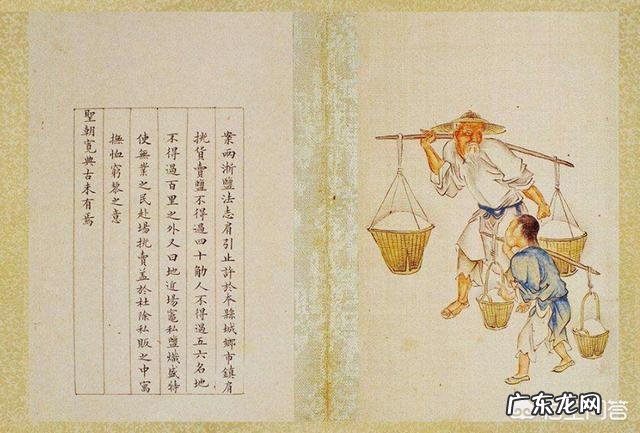 案兩浙鹽法志肩引止許於本縣城鄉市鎮肩
挑貨賣鹽不得過四十觔人不得過五六名地
不得過百里之外又曰地近場竈私鹽熾盛特
使無業之民赴場挑賣蓋於杜除私販之中寓
撫恤窮黎之意
聖朝寬典古未有焉
广东龙网
问答